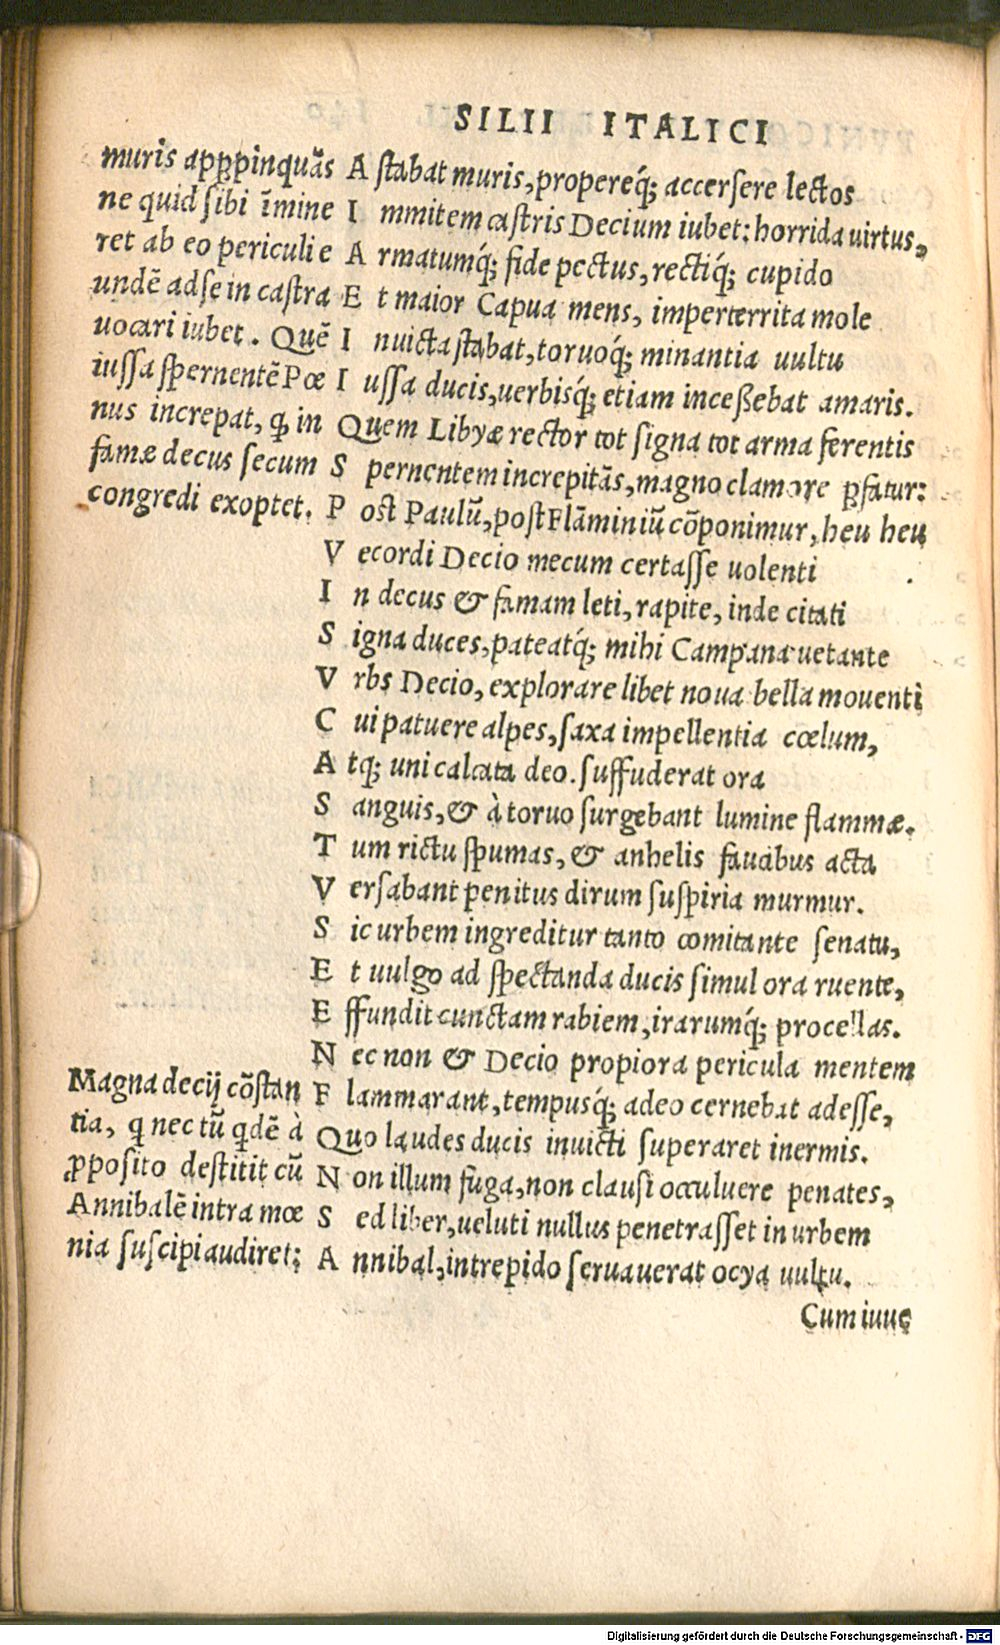 SILII ITALICI
muris appropinquãs
ne quid sibi ĩmine
ret ab eo periculi e
undẽ ad se in castra
uocari iubet. Quẽ
iussa spernentẽ Pœ
nus increpat, ꝙ in
famæ decus secum
congredi exoptet.
A stabat muris, propereq́; accersere lectos
I mmitem castris Decium iubet: horrida uirtus,
A rmatumq́; fide pectus, rectiq́; cupido
E t maior Capua mens, imperterrita mole
I nuicta stabat, toruoq́; minantia uultu
I ussa ducis, uerbisq́; etiam inceßebat amaris.
Quem Libyæ rector tot signa tot arma ferentis
S pernentem increpitãs, magno clamore ꝓfatur:
P ost Paulũ, post Flãminiũ cõponimur, heu heu
V ecordi Decio mecum certasse uolenti
I n decus & famam leti, rapite, inde citati
S igna duces, pateatq́; mihi Campana uetante
V rbs Decio, explorare libet noua bella mouenti
C ui patuere alpes, saxa impellentia cœlum,
A tq́; uni calcata deo. suffuderat ora
S anguis, & à toruo surgebant lumine flammæ.
T um rictu spumas, & anhelis faucibus acta
V ersabant penitus dirum suspiria murmur.
S ic urbem ingreditur tanto comitante senatu,
E t uulgo ad spectanda ducis simul ora ruente,
E ffundit cunctam rabiem, irarumq́; procellas.
N ec non & Decio propiora pericula mentem
F lammarant, tempusq́; adeo cernebat adesse,
Quo laudes ducis inuicti superaret inermis.
N on illum fuga, non clausi occuluere penates,
S ed liber, ueluti nullus penetrasset in urbem
A nnibal, intrepido seruauerat ocya uultu.
Magna decij cõstan
tia, q nec tũ qdẽ à
ꝓposito destitit cũ
Annibalẽ intra mœ
nia suscipi audiret;
Cum iuue
Digitalisierung gefördert durch die Deutsche Forschungsgemeinschaft - DFG